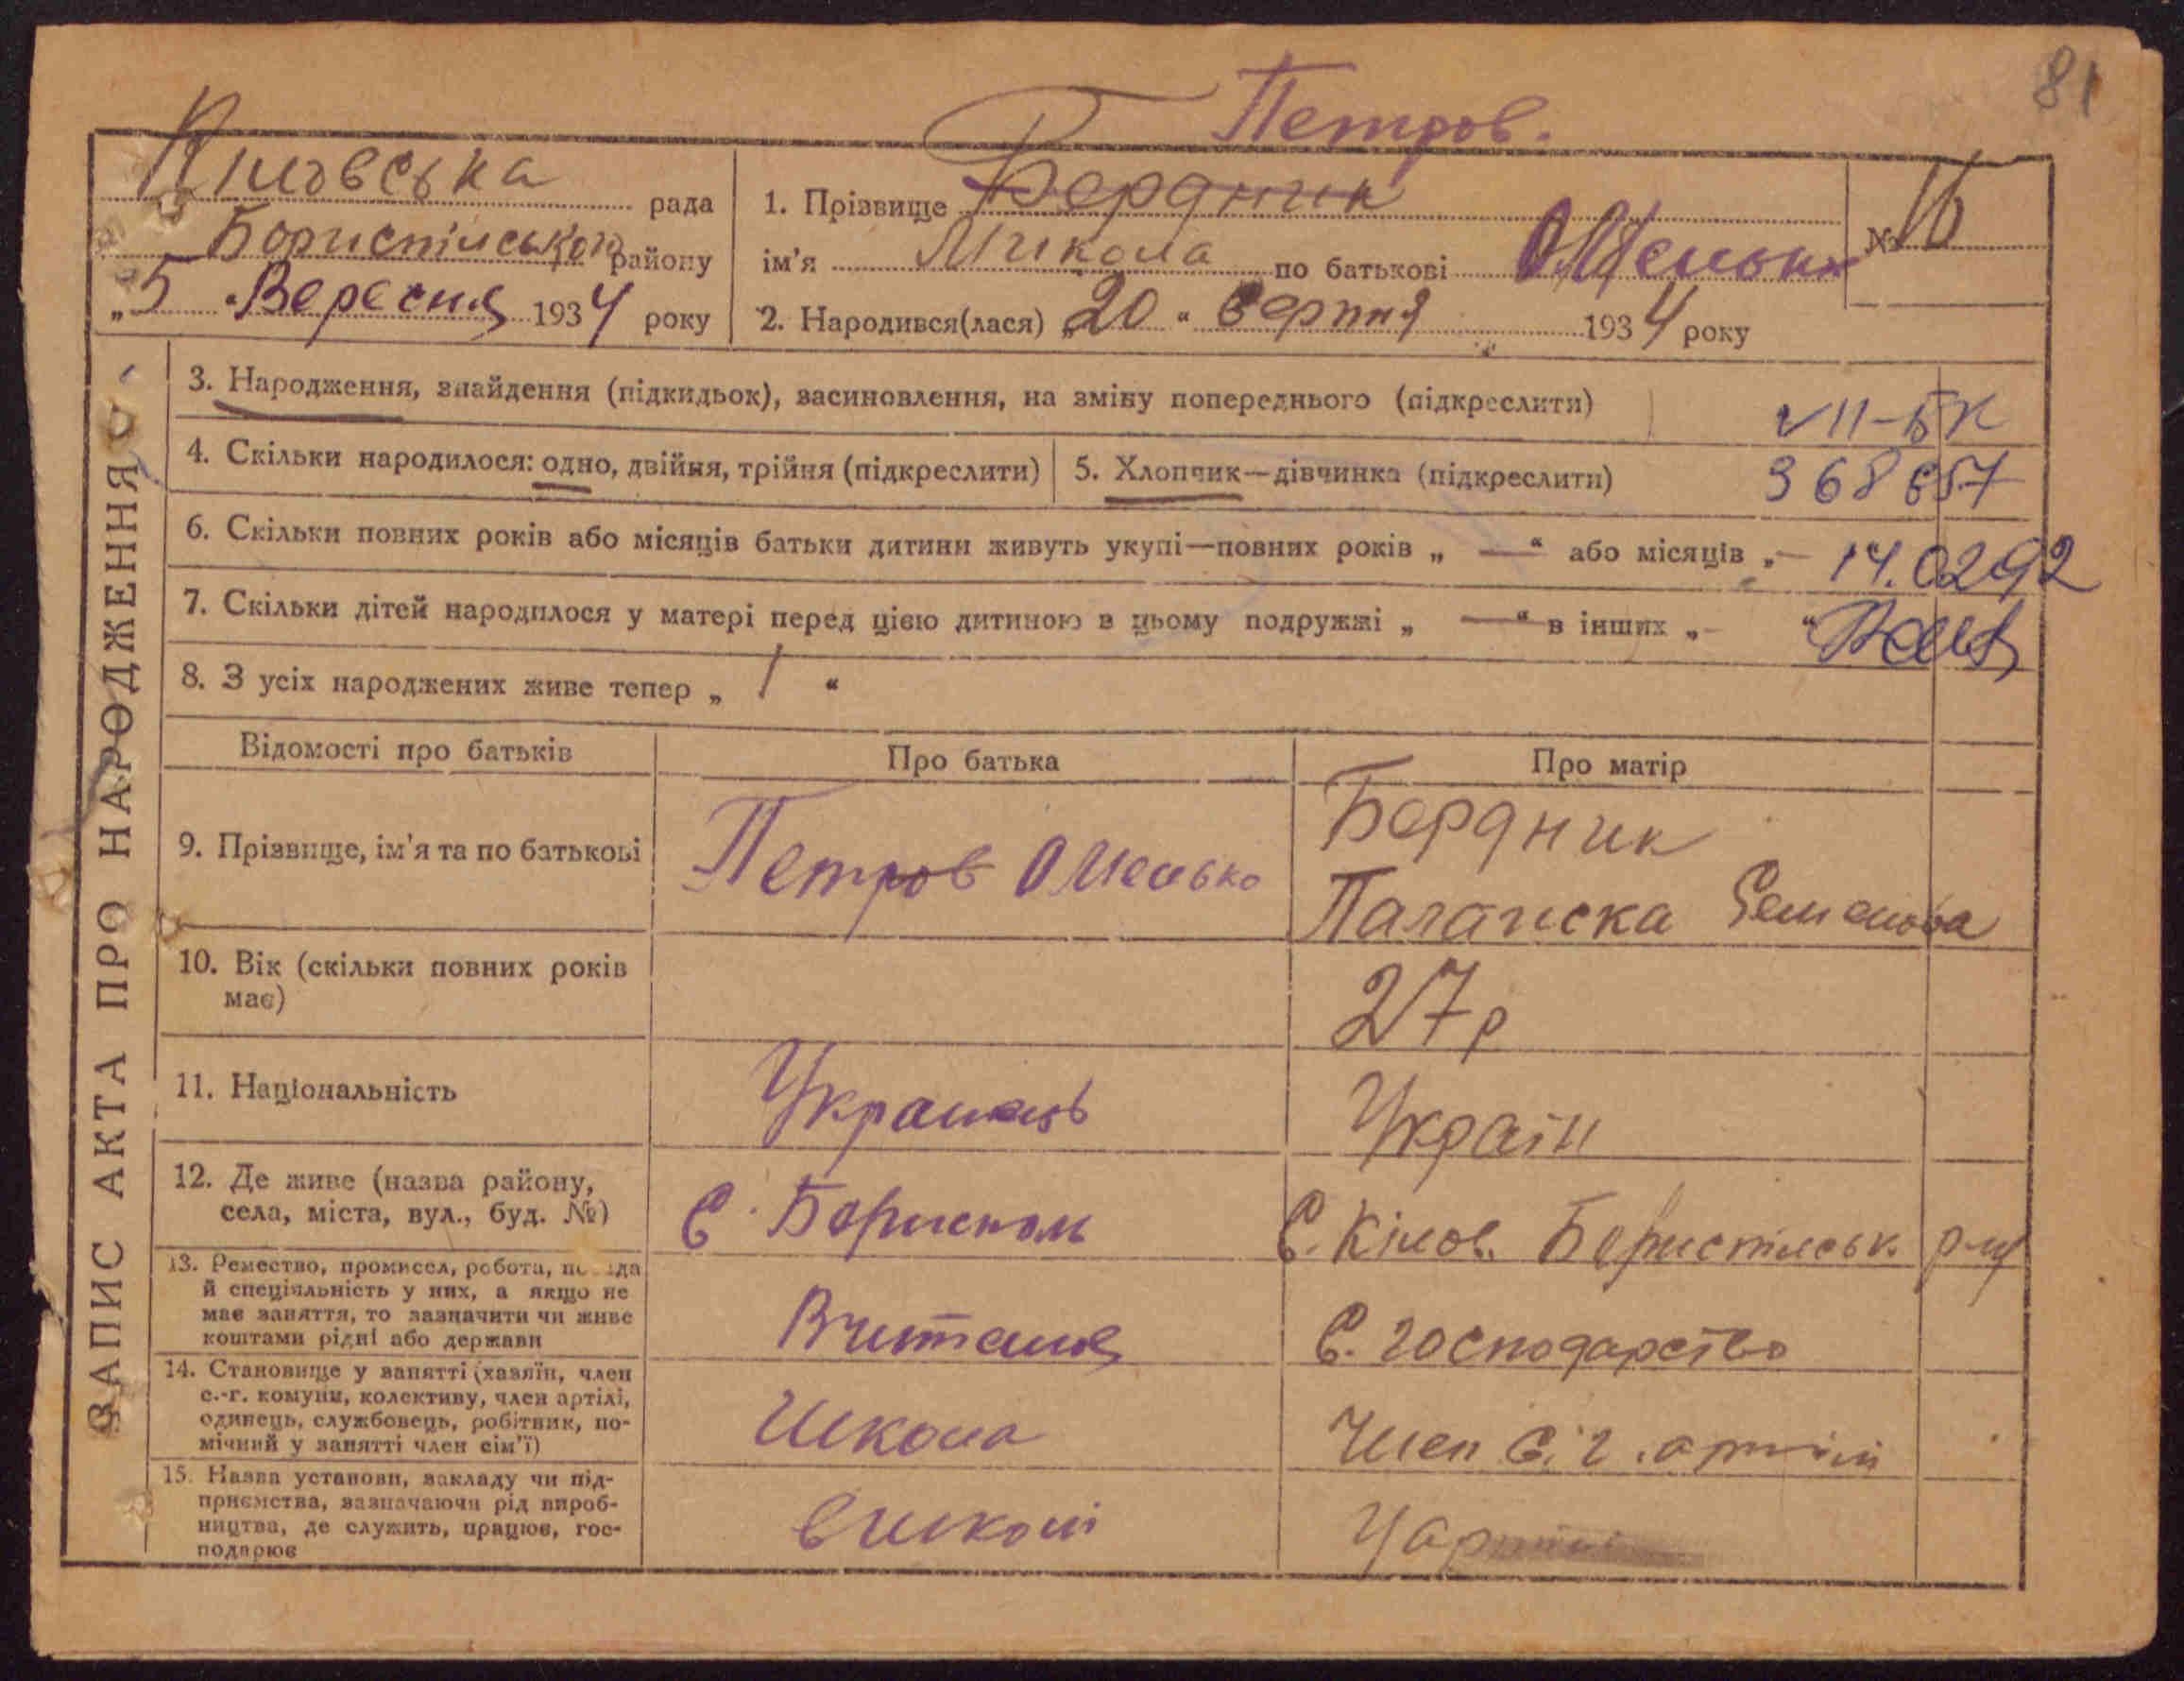 81
Петров.
Кіловська рада
Бориспільського району
„5" Вересня 1934 року
1. Прізвище Бердник
ім'я Микола по батькові Омельк
2. Народився(лася) „20" серпня 1934 року
№ 16
ЗАПИС АКТА ПРО НАРОДЖЕННЯ
3. Народження, знайдення (підкидьок), засиновлення, на зміну попереднього (підкреслити)
VII-БК
4. Скільки народилося: одно, двійня, трійня (підкреслити)
5. Хлопчик—дівчинка (підкреслити)
368657
6. Скільки повних років або місяців батьки дитини живуть укупі—повних років „ — " або місяців „ —
14.0292
7. Скільки дітей народилося у матері перед цією дитиною в цьому подружжі „ — " в інших „ — "
8. З усіх народжених живе тепер „ 1 "
Відомості про батьків
Про батька
Про матір
9. Прізвище, ім'я та по батькові
Петров Омелько
Бердник
Палажска Семенова
10. Вік (скільки повних років
має)
27 р
11. Національність
Украинець
Україн
12. Де живе (назва району,
села, міста, вул., буд. №)
с. Бориспол
с. Кілов. Бориспільськ. р-ну
13. Ремество, промисел, робота, посада
й спеціяльність у них, а якщо не
має заняття, то зазначити чи живе
коштами рідні або держави
Вчителя
с. господарство
14. Становище у занятті (хазяїн, член
с.-г. комуни, колективу, член артілі,
одинець, службовець, робітник, по-
мічний у занятті член сім'ї)
Школа
Член с. г. артілі
15. Назва установи, закладу чи під-
приємства, зазначаючи рід вироб-
ництва, де служить, працює, гос-
подарює
в школі
У артілі